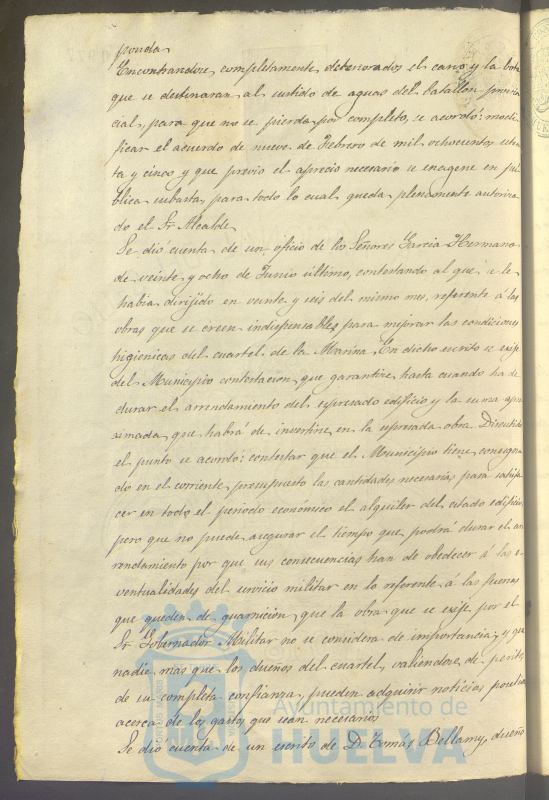 ponda
Encontrandose completamente deteriorados el carro y la bota
que se destinaran al surtido de aguas del batallon provin
cial, para que no se pierda por completo, se acordó: modi
ficar el acuerdo de nueve de Febrero de mil ochocientos seten
ta y cinco y que previo el aprecio necesario se enagene en pú
blica subasta, para todo lo cual queda plenamente autoriza
do el Sr. Alcalde
Se dió cuenta de un oficio de los Señores Garcia Hermano
de veinte y ocho de Junio último, contestando al que se le
habia dirijido en veinte y seis del mismo mes, referente á las
obras que se creen indispensables para mejorar las condiciones
higienicas del cuartel de la Marina. En dicho escrito se exije
del Municipio contestacion, que garantice, hasta cuando ha de
durar el arrendamiento del espresado edificio y la suma apro
ximada que habrá de invertirse en la espresada obra. Discutido
el punto se acordó: contestar que el Municipio tiene consigna
do en el corriente presupuesto las cantidades necesarias para satisfa
cer en todo el período económico el alquiler del citado edificio
pero que no puede asegurar el tiempo que podrá durar el ar
rendamiento por que sus consecuencias han de obedecer á las e
ventualidades del servicio militar en lo referente á las fuerzas
que queden de guarnicion, que la obra que se exije por el
Sr Gobernador Militar no se considera de importancia, y que
nadie mas que los dueños del cuartel, valiendose de peritos
de su completa confianza, pueden adquirir noticias positivas
acerca de los gastos que sean necesarios
Se dió cuenta de un escrito de D. Tomás Bellamy, dueño
Ayuntamiento de
HUELVA